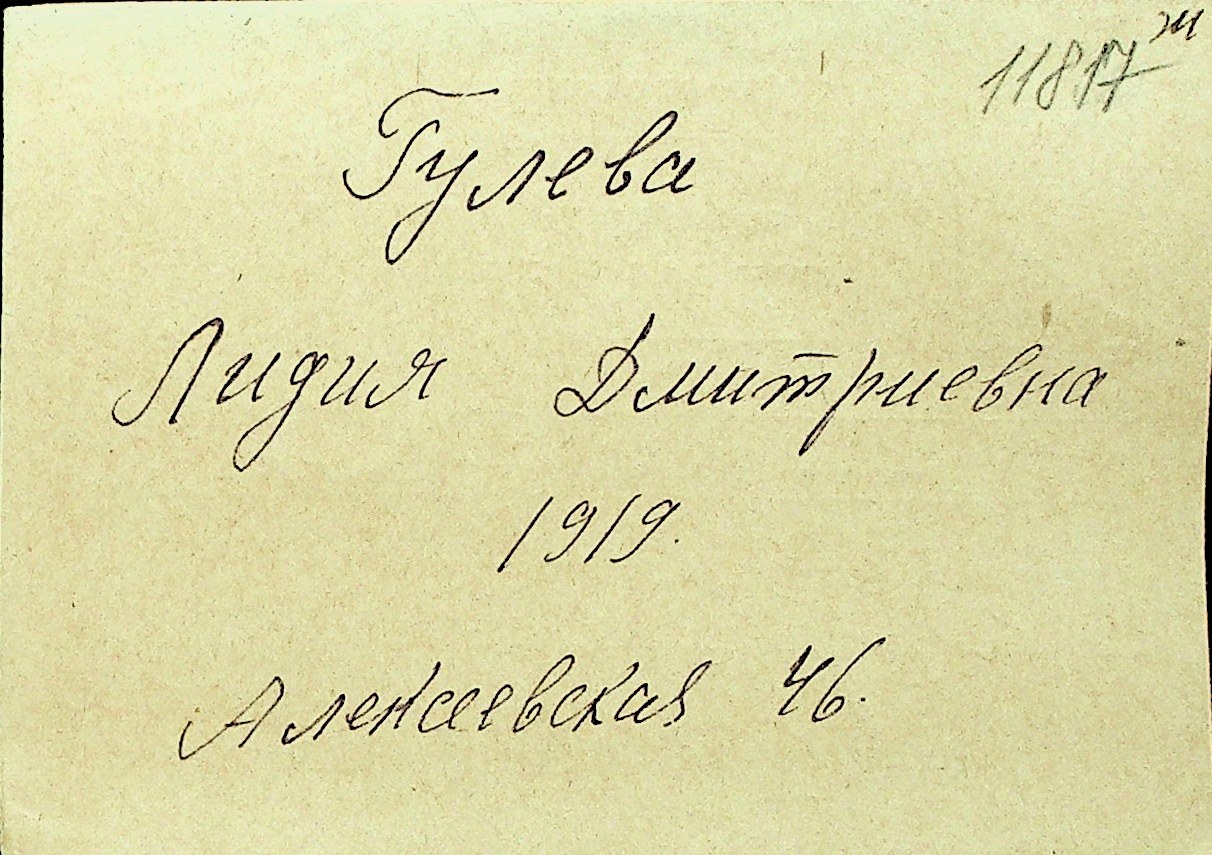 11817 ж
Гулева
Лидия Дмитриевна
1919.
Алексеевская 46.